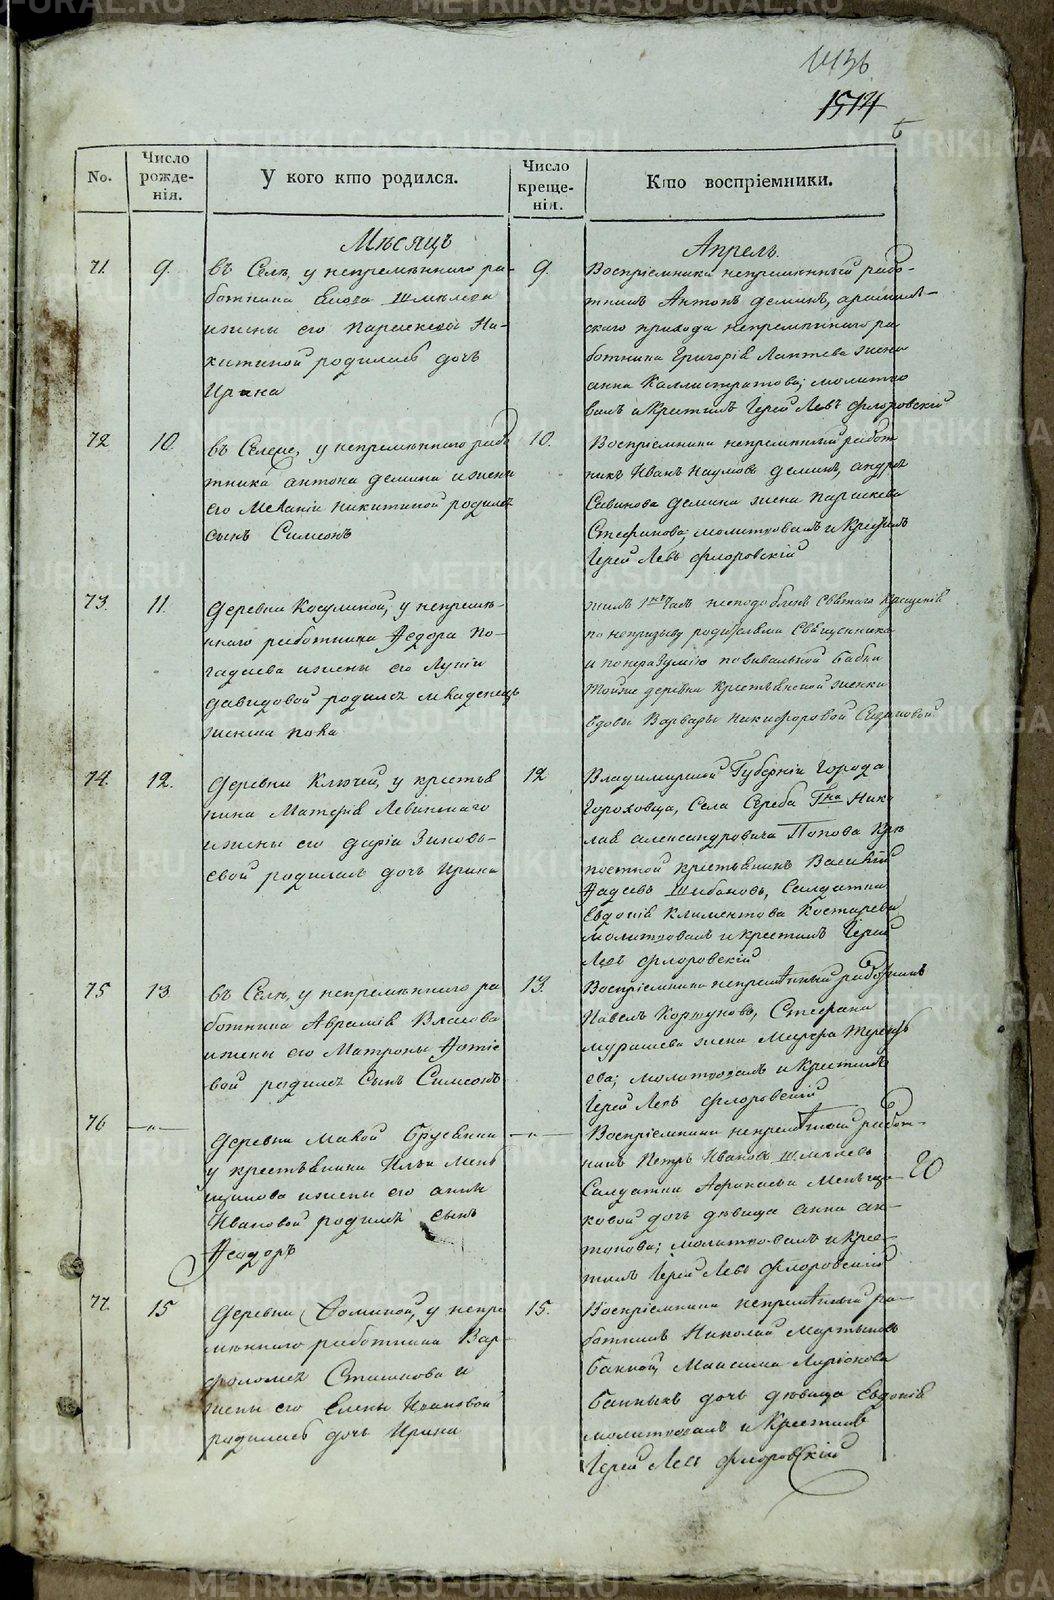 1436
1514
6
No.
Число рожденія.
У кого кто родился.
Число крещенія.
Кто воспріемники.
Мѣсяцъ
Апрель.
71.
9.
въ Селѣ, у непремѣннаго ра-
ботника
ижены его Параскевы Ни-
китиной родилась дочь
Ирина
9.
Воспріемники непремѣнный рабо-
тникъ Антонъ Деминъ,
скаго прихода непремѣннаго ра
ботника Григорія Лаптева жена
анна Каллистратова; молитво
валъ и Крестилъ Іерей Левъ Флоровскій
72
10.
въ Селѣ, у непремѣннаго рабо
тника антона Демина ижены
его Меланіи Никитиной родился
сынъ Симеонъ
10.
Воспріемники непремѣнный работ
никъ Иванъ Наумовъ Деминъ, андрея
Савинова Демина жена Параскева
Стефанова; молитвовалъ и Крестилъ
Іерей Левъ Флоровскій
73.
11.
Деревни Косулиной, у непремѣ-
ннаго работника Ѳедора По-
гадаева ижены его Лукіи
Давидовой родился младенецъ
женска пола
жилъ 1 часъ неподобленъ Святаго Крещенія
по непризыву родителями Священника
и по неразумію повивальной бабки
тойже деревни Крестьянской женки
вдовы Варвары Никифоровой
74.
12.
Деревни Ключей, у крестья
нина Матѳія Левинскаго
ижены его Даріи Зиновь-
евой родилась дочь Ирина
12
Владимирской Губерніи Города
Гороховца, Села Г-на Нико
лая александровича Попова Крѣ
постной крестьянинъ Василій
Ѳадѣевъ Шибановъ, Салдатка
Евдокія Климентова Костарева
молитвовалъ и крестилъ Іерей
Левъ Флоровскій
75
13
въ Селѣ, у непремѣннаго ра
ботника Авраамія Власова
ижены его Матроны Фотіе
вой родился сынъ Симеонъ
13.
Воспріемники непремѣнный работникъ
Павелъ Коршуновъ, Стефана
Мурашева жена Марѳа Терентье
ева; молитвовалъ и Крестилъ
Іерей Левъ Флоровскій
76
—„—
Деревни Малой Брусянки
у крестьянина Ильи Мень
щикова ижены его анны
Ивановой родился сынъ
Ѳеодоръ
—„—
Воспріемники непремѣнный работ-
никъ Петръ Ивановъ Шмелевъ
Салдатки Афанасьи Меньщи-
ковой дочь дѣвица анна ан-
тонова; молитвовалъ и Крес-
тилъ Іерей Левъ Флоровскій
20
77.
15
Деревни Фоминой, у непре
мѣннаго работника Вар-
фоломея Сташкова и
жены его Елены Ивановой
родилась дочь Ирина
15.
Воспріемники непремѣнный ра-
ботникъ Николай Мартыновъ
Банной, Максима Ларіонова
Банныхъ дочь дѣвица Евдокія
молитвовалъ и Крестилъ
Іерей Левъ Флоровскій
METRIKI.GASO-URAL.RU